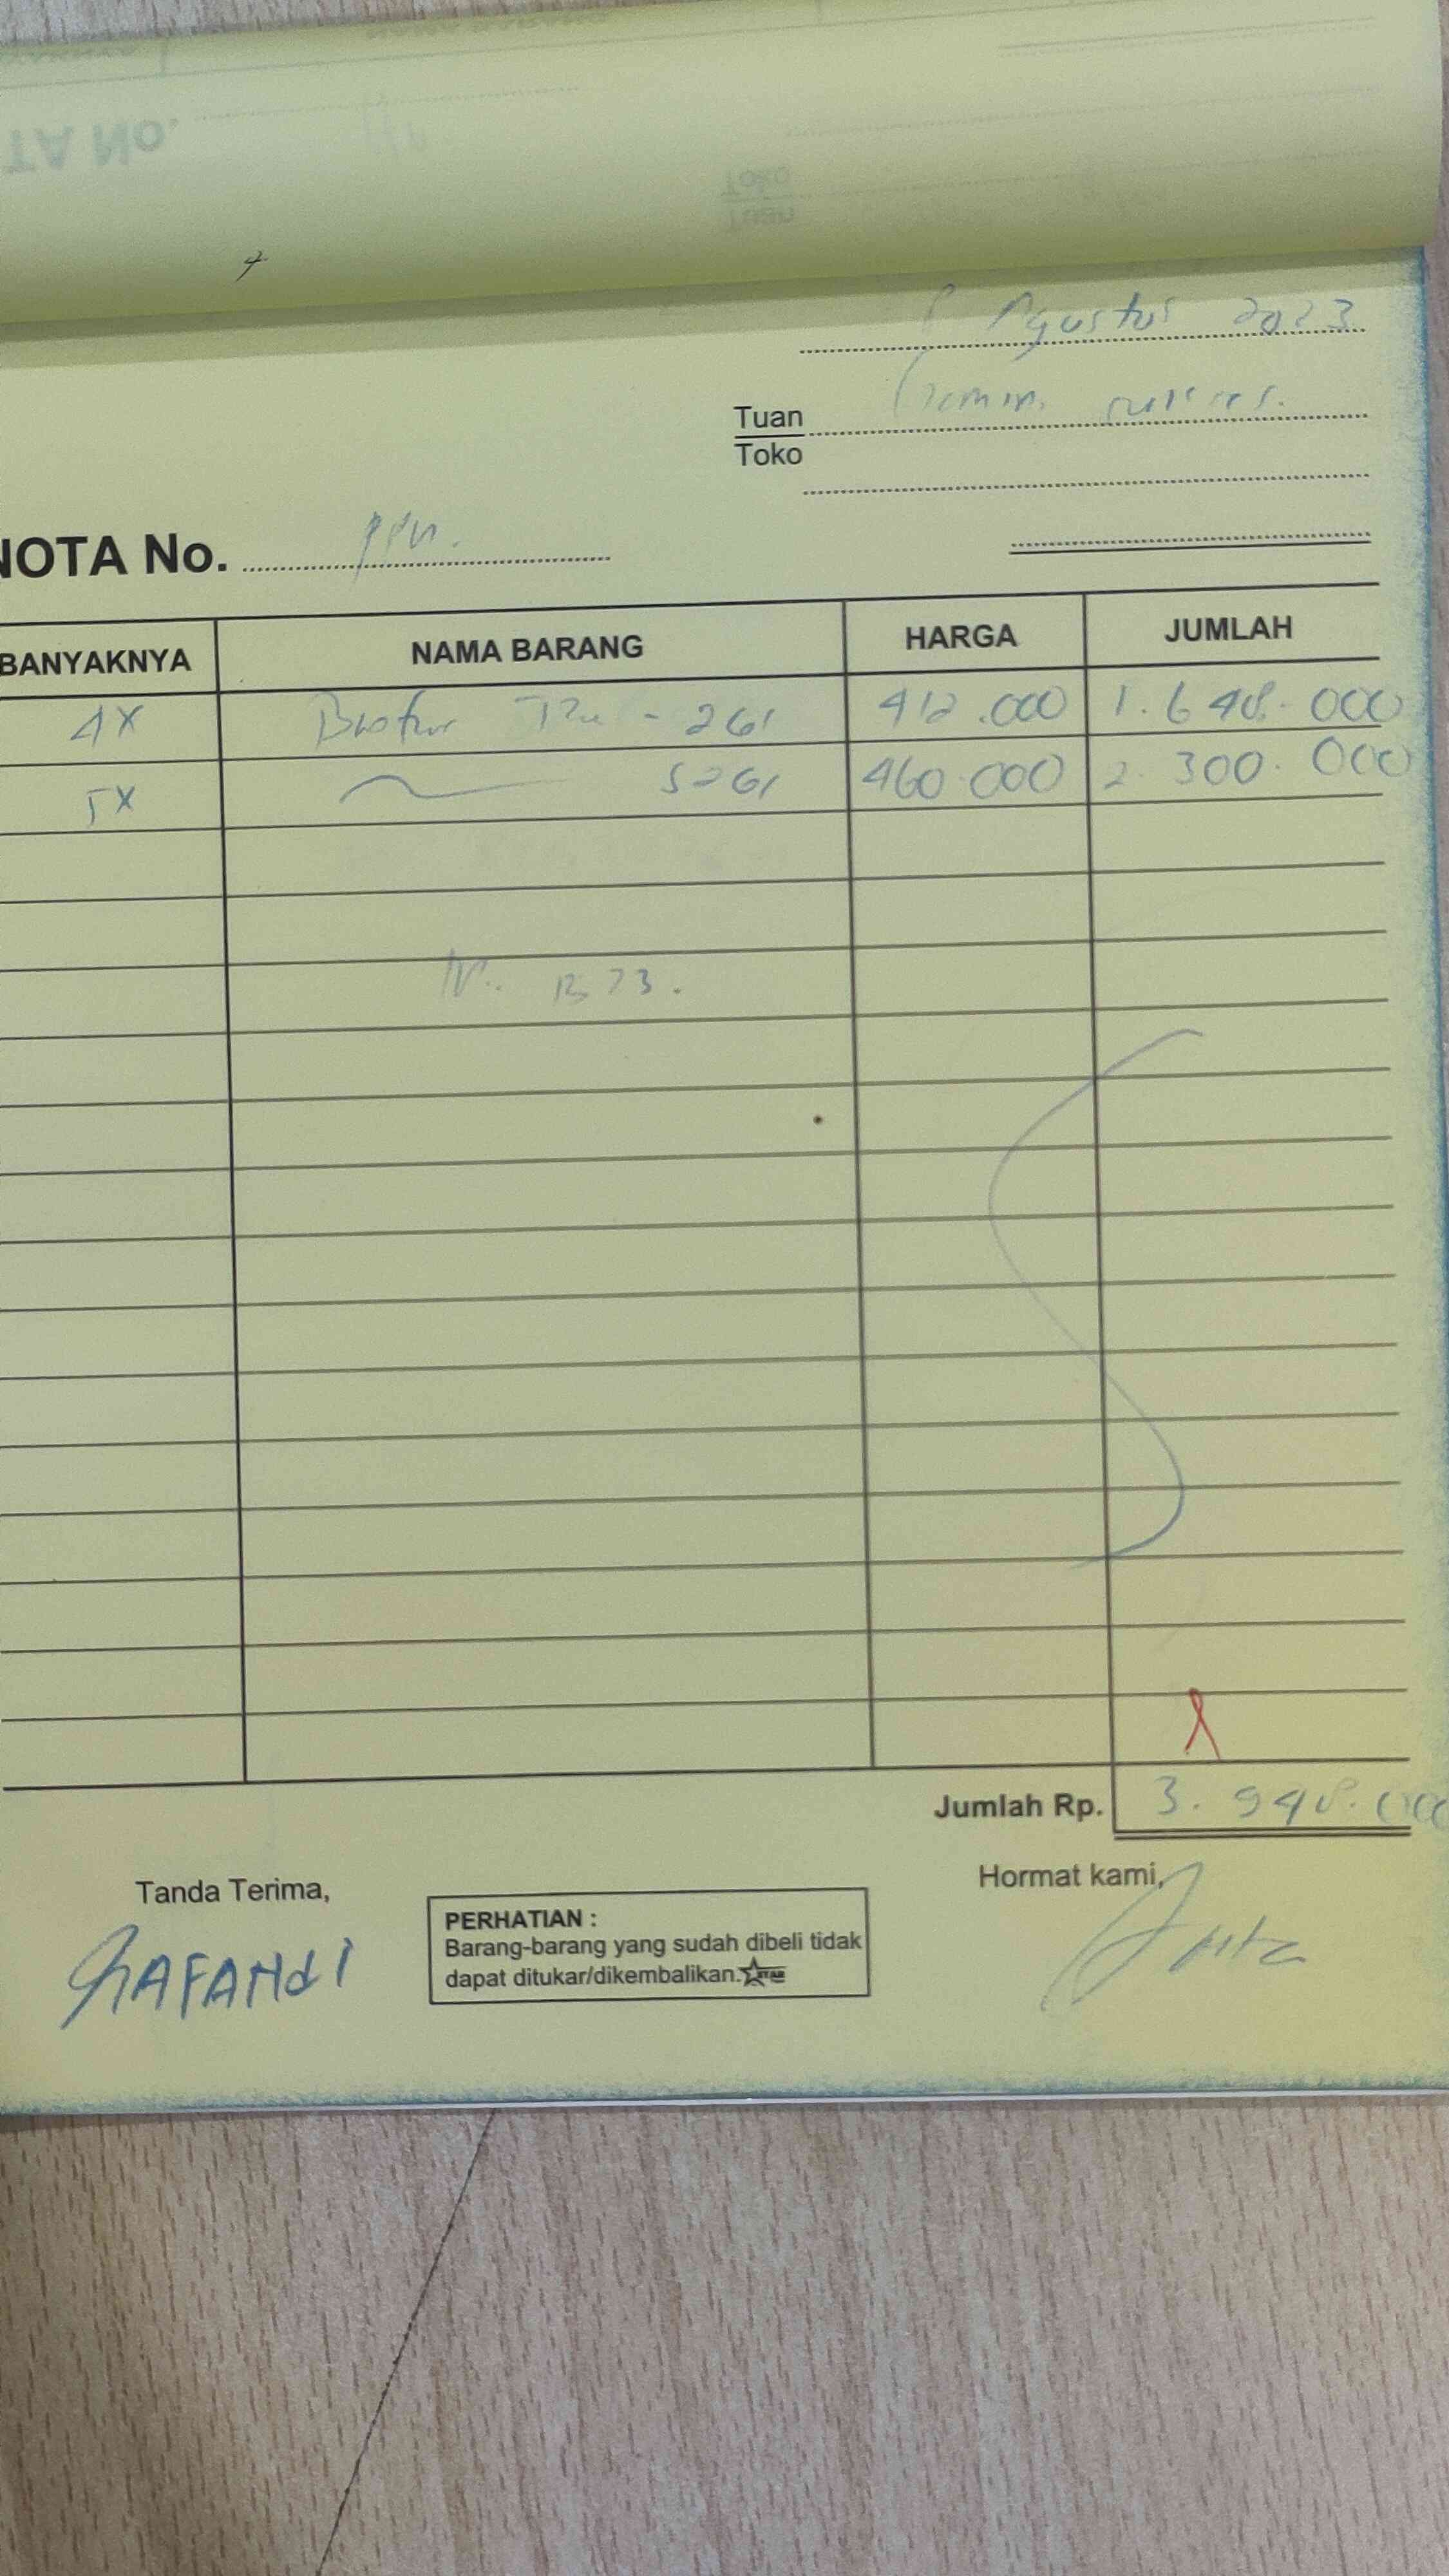 TA No.
Toko
Tuan
Agustus 2023
Tuan
Toko
NOTA No. PPN.
BANYAKNYA NAMA BARANG HARGA JUMLAH
4X - 261 412.000 1.648.000
5X 5261 460.000 2.300.000
B73.
Jumlah Rp. 3.948.000
Tanda Terima,
Hormat kami,
PERHATIAN :
Barang-barang yang sudah dibeli tidak
dapat ditukar/dikembalikan.